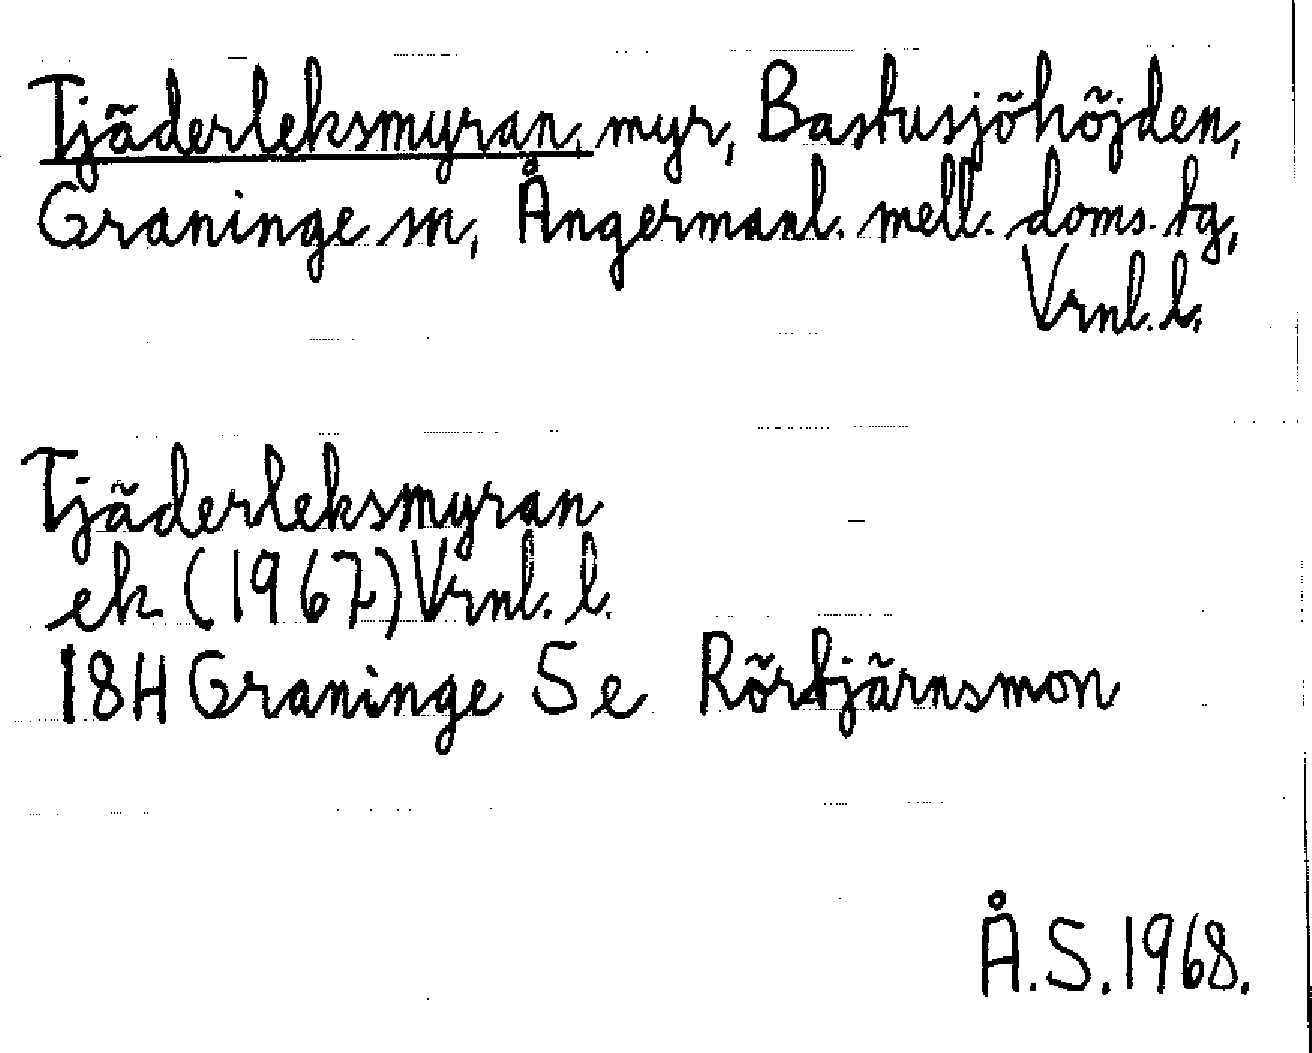 Tjäderleksmyran, myr, Bastusjöhöjden,
Graninge sn, Ångermanl. mell. doms. tg,
Vrnl. l.
Tjäderleksmyran
ek (1967) Vrnl. l.
18H Graninge 5 e Rörtjärnsmon
Å.S. 1968.